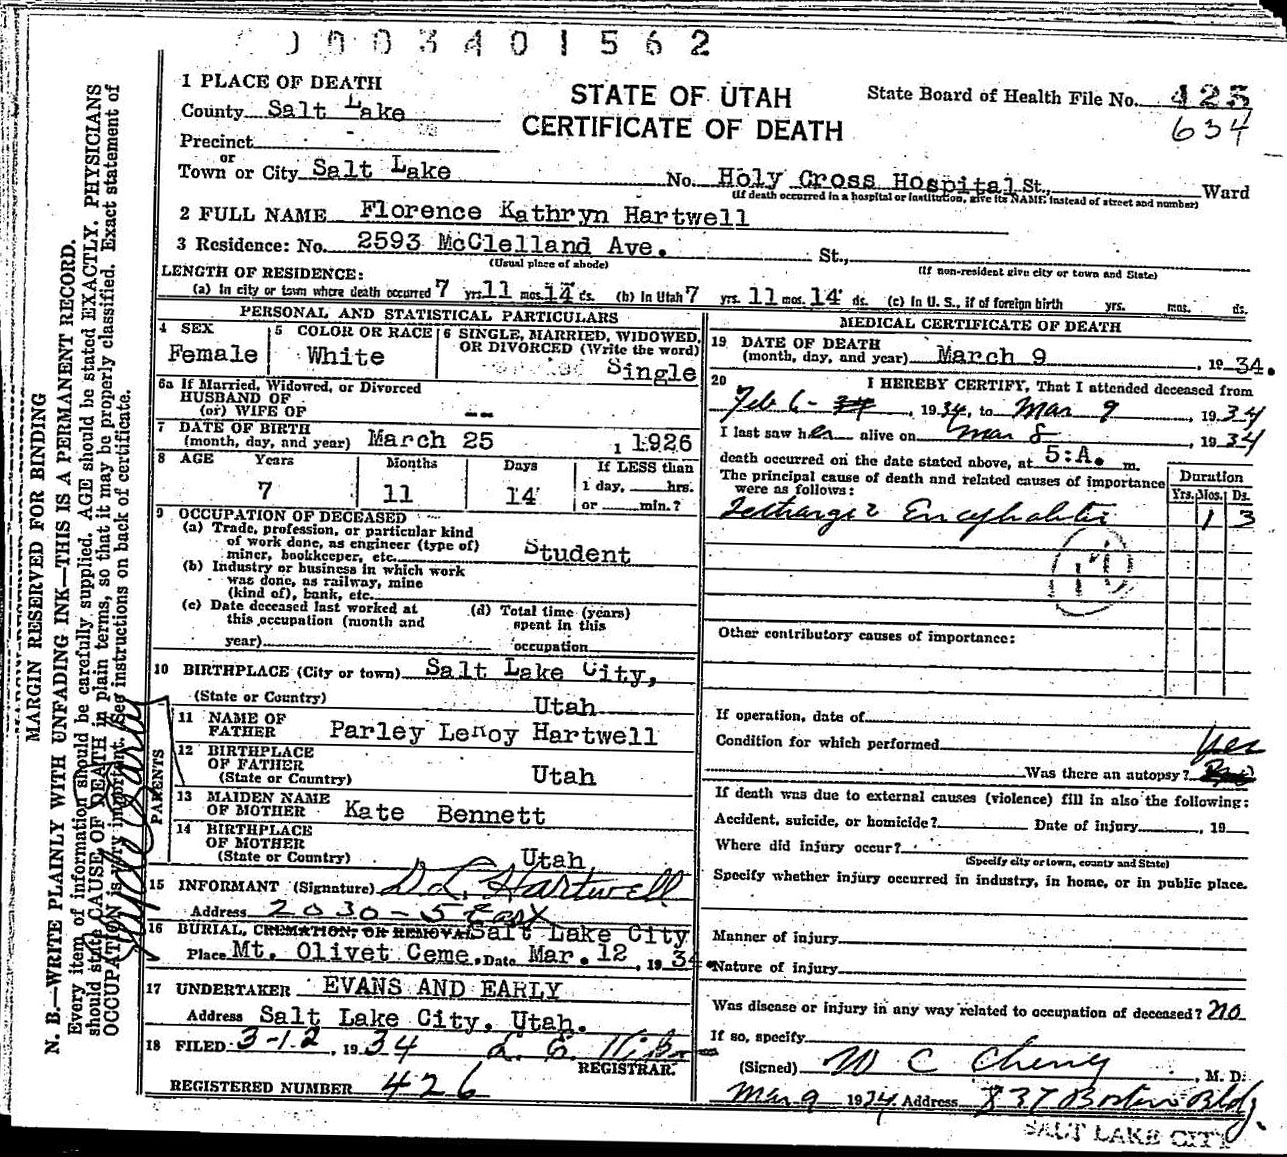 0003401562
1 PLACE OF DEATH
STATE OF UTAH
CERTIFICATE OF DEATH
State Board of Health File No. 425
634
County Salt Lake
Precinct
or
Town or City Salt Lake No. Holy Cross Hospital St., Ward
(If death occurred in a hospital or institution, give its NAME instead of street and number)
2 FULL NAME Florence Kathryn Hartwell
3 Residence: No. 2593 McClelland Ave. St.,
(Usual place of abode) (If non-resident give city or town and State)
LENGTH OF RESIDENCE:
(a) In city or town where death occurred 7 yrs. 11 mos. 14 ds. (b) In Utah 7 yrs. 11 mos. 14 ds. (c) In U. S., if of foreign birth yrs. mos. ds.
PERSONAL AND STATISTICAL PARTICULARS
4 SEX
Female
5 COLOR OR RACE
White
6 SINGLE, MARRIED, WIDOWED,
OR DIVORCED (Write the word)
Single
6a If Married, Widowed, or Divorced
HUSBAND OF
(or) WIFE OF --
7 DATE OF BIRTH
(month, day, and year) March 25, 1926
8 AGE Years Months Days If LESS than
7 11 14 1 day, hrs.
or min.?
9 OCCUPATION OF DECEASED
(a) Trade, profession, or particular kind
of work done, as engineer (type of)
miner, bookkeeper, etc. Student
(b) Industry or business in which work
was done, as railway, mine
(kind of), bank, etc.
(c) Date deceased last worked at
this occupation (month and
year)
(d) Total time (years)
spent in this
occupation
10 BIRTHPLACE (City or town) Salt Lake City,
(State or Country) Utah
PARENTS
11 NAME OF
FATHER Parley LeRoy Hartwell
12 BIRTHPLACE
OF FATHER
(State or Country) Utah
13 MAIDEN NAME
OF MOTHER Kate Bennett
14 BIRTHPLACE
OF MOTHER
(State or Country) Utah
15 INFORMANT (Signature) D L Hartwell
Address 2030-5 East
16 BURIAL, CREMATION, OR REMOVAL Salt Lake City
Place Mt. Olivet Ceme. Date Mar. 12, 1934
17 UNDERTAKER EVANS AND EARLY
Address Salt Lake City, Utah.
18 FILED 3-12, 1934
REGISTRAR.
REGISTERED NUMBER 426
MEDICAL CERTIFICATE OF DEATH
19 DATE OF DEATH
(month, day, and year) March 9, 1934.
20 I HEREBY CERTIFY, That I attended deceased from
Feb 6-34, 1934, to Mar 9, 1934
I last saw her alive on Mar 8, 1934
death occurred on the date stated above, at 5:A. m.
The principal cause of death and related causes of importance
were as follows:
Duration
Yrs. Mos. Ds.
Lethargic Encephalitis 1 3
17
Other contributory causes of importance:
If operation, date of
Condition for which performed
Yes
Was there an autopsy?
If death was due to external causes (violence) fill in also the following:
Accident, suicide, or homicide? Date of injury, 19
Where did injury occur?
(Specify city or town, county and State)
Specify whether injury occurred in industry, in home, or in public place.
Manner of injury
Nature of injury
Was disease or injury in any way related to occupation of deceased? no
If so, specify
(Signed) W C Cheney, M. D.
Mar 9 1934 Address 837 Boston Bldg.
SALT LAKE CITY
MARGIN RESERVED FOR BINDING
N. B.—WRITE PLAINLY WITH UNFADING INK—THIS IS A PERMANENT RECORD.
Every item of information should be carefully supplied. AGE should be stated EXACTLY. PHYSICIANS
should state CAUSE OF DEATH in plain terms, so that it may be properly classified. Exact statement of
OCCUPATION is very important. See instructions on back of certificate.